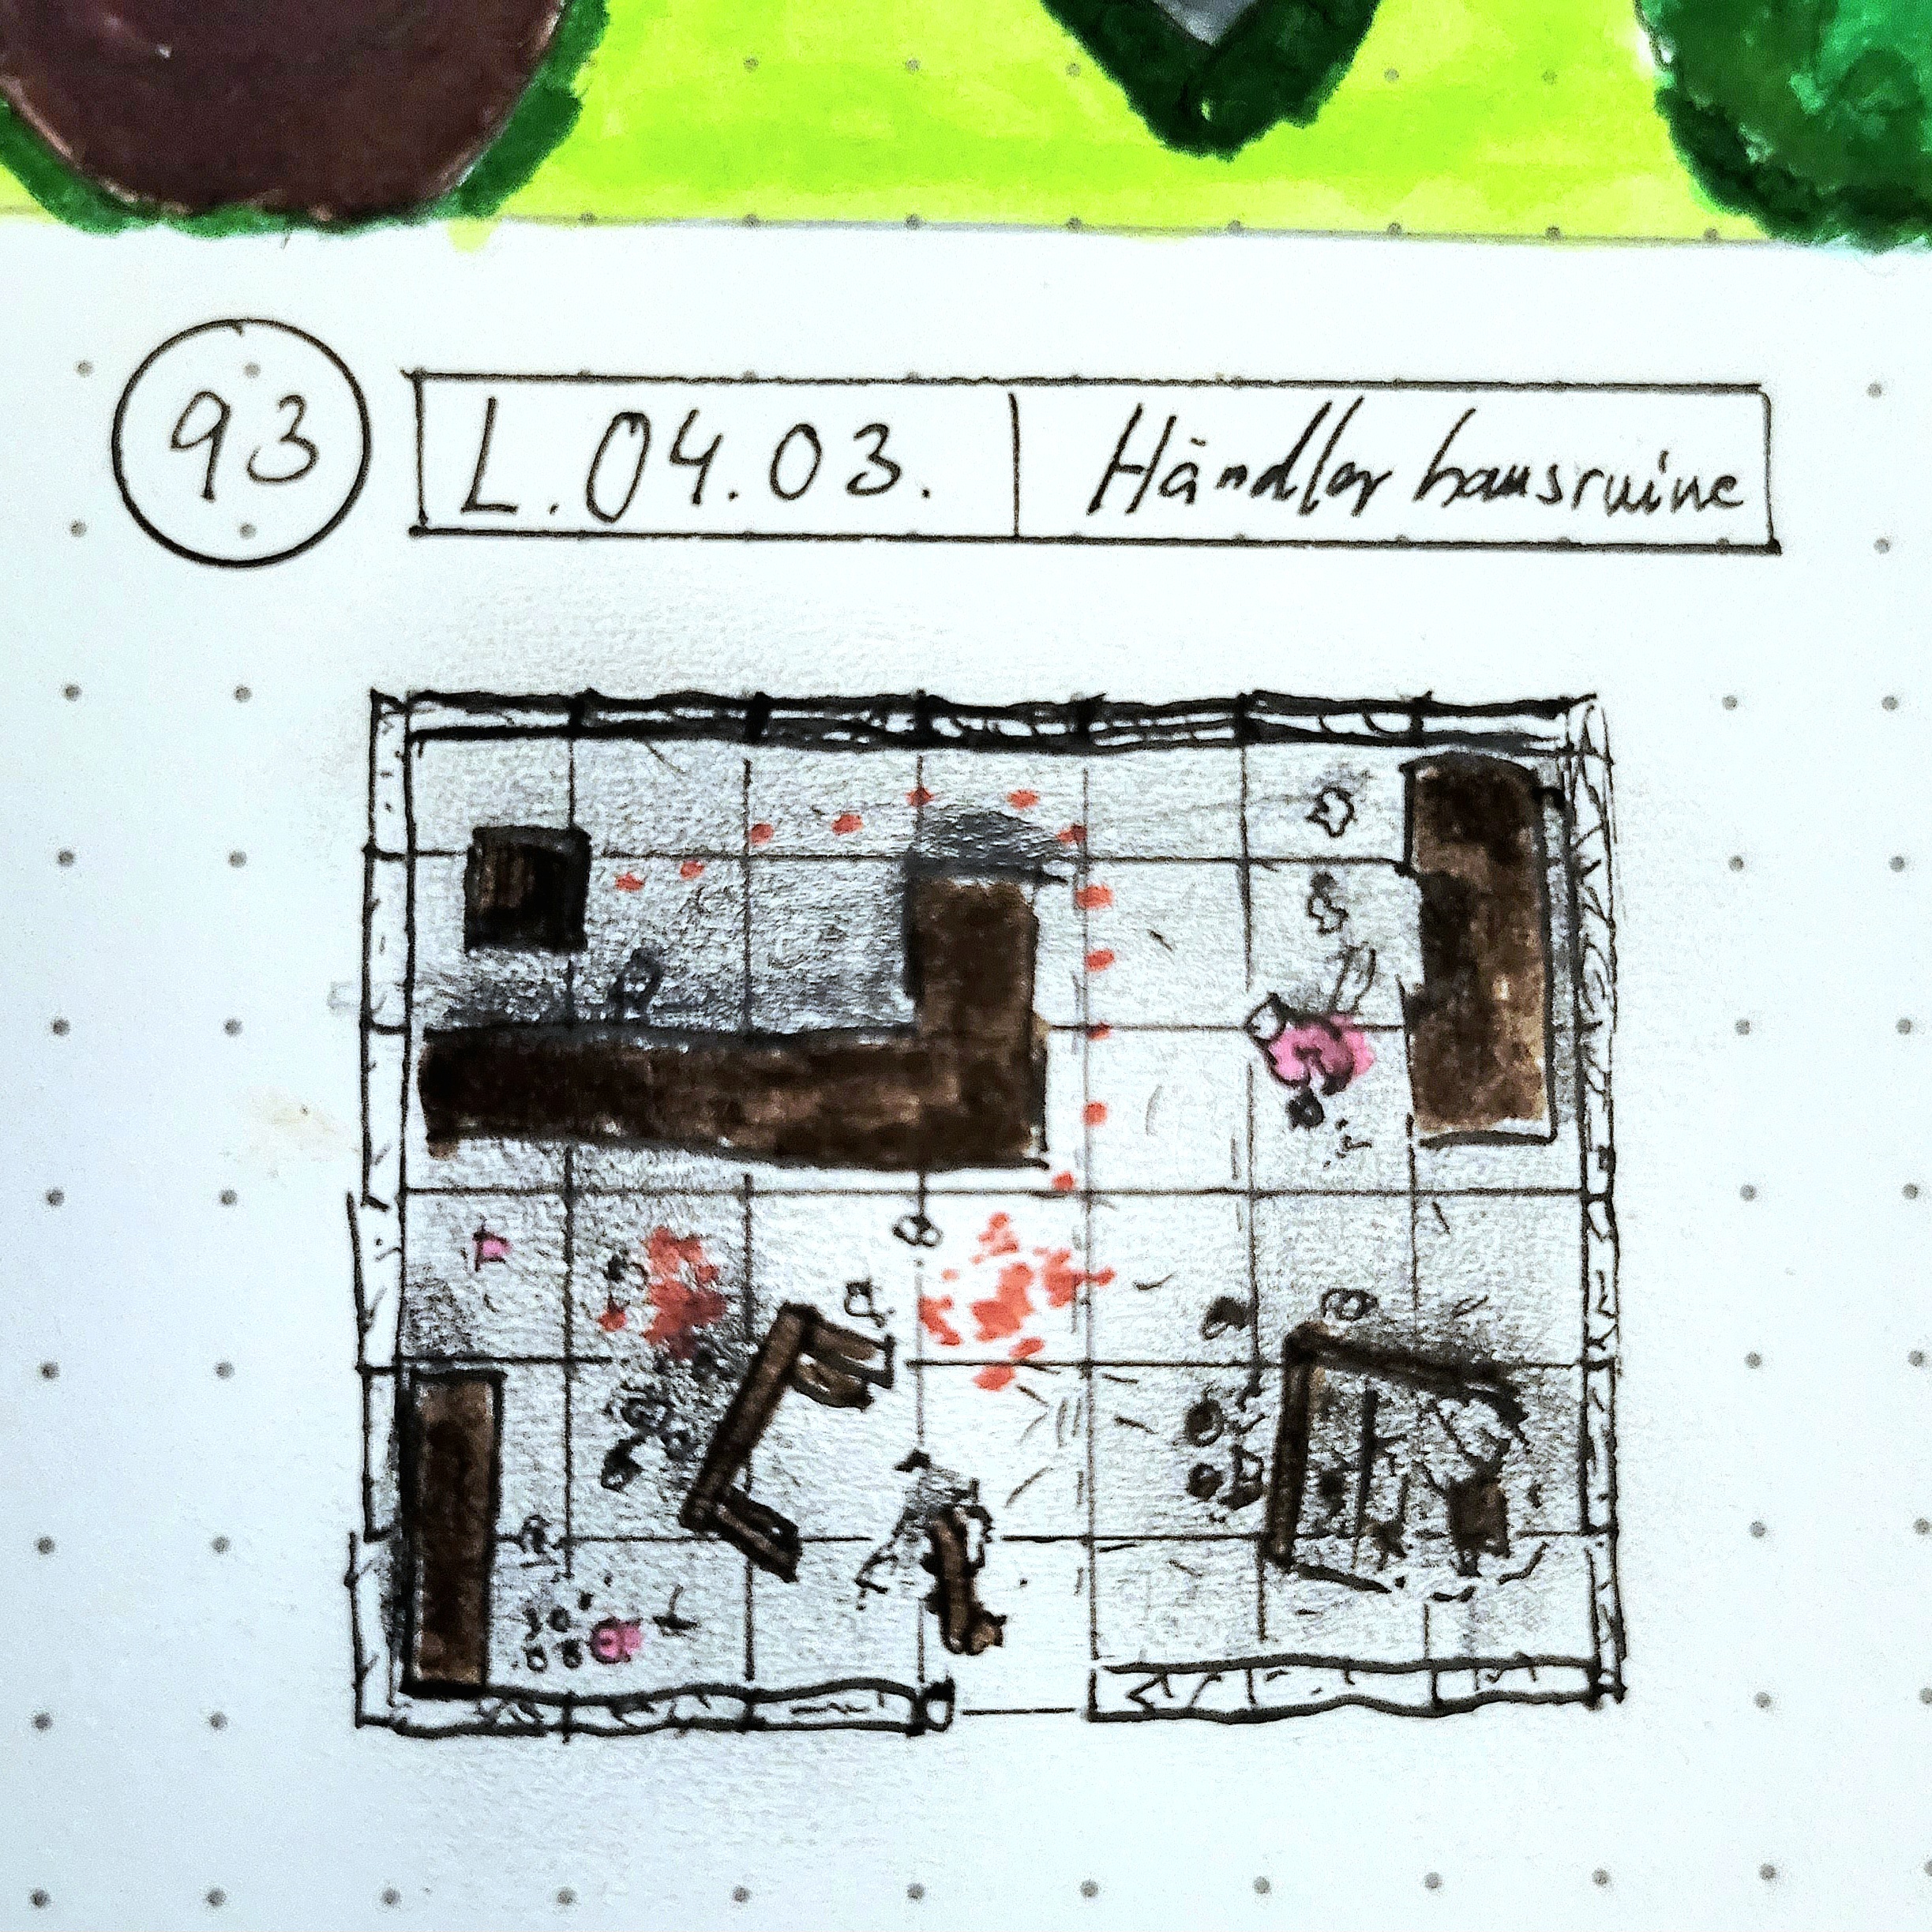 93
L.04.03. Händlerhausruine